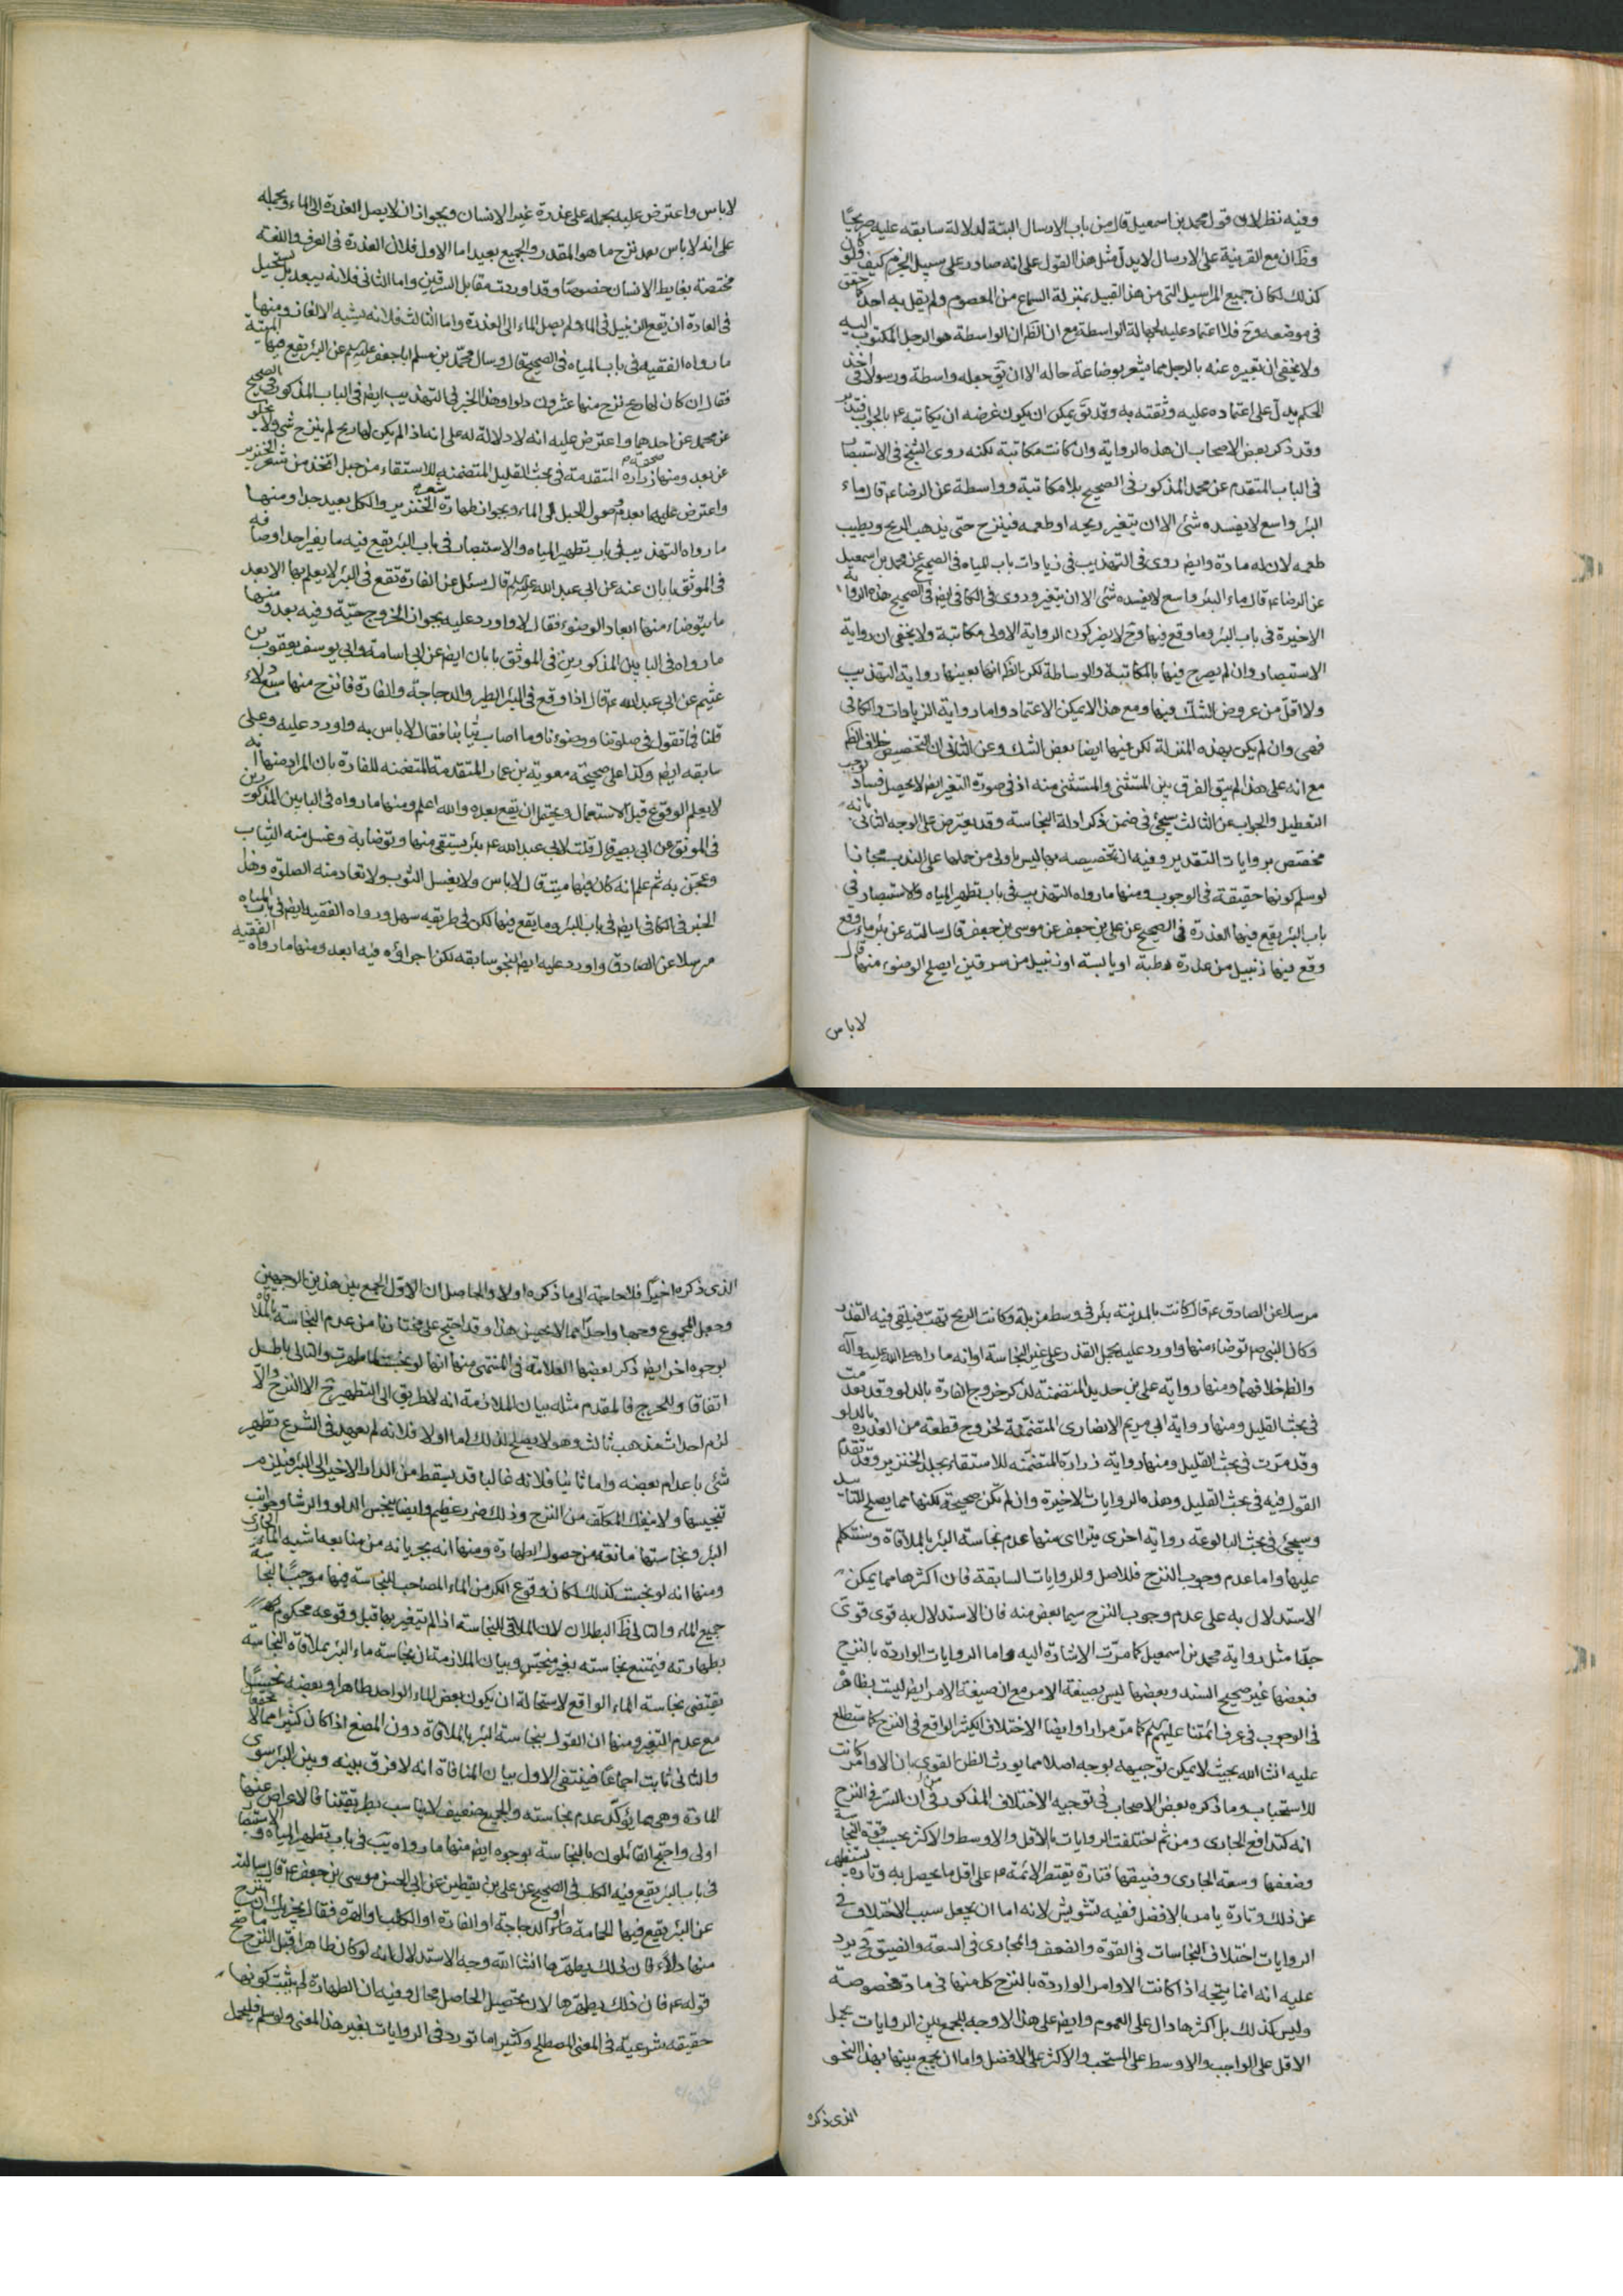 وفيه نظر لان قول محمد بن اسمعيل قال من باب الارسال البتة لدلالة سابقه عليه صريحًا
وظ ان مع القرينة على الارسال لا يدل مثل هذا القول على انه صادر على سبيل الجزم كيف ولو كان
كذلك لكان جميع المراسيل التى من هذا القبيل بمنزلة السماع من المعصوم ولم يقل به احد كما حقق
فى موضعه وح فلا اعتماد عليه لجهالة الواسطة مع ان الظ ان الواسطة هو الرجل المكتوب اليه
ولا يخفى ان تعبيره عنه بالرجل مما يشعر بوضاعة حاله الا ان يق جعله واسطة ورسولا فى اخذ
الحكم يدل على اعتماده عليه وثقته به وقد يق يمكن ان يكون غرضه ان يكاتبه ع بالجواب فتدبر
وقد ذكر بعض الاصحاب ان هذه الرواية وان كانت مكاتبة لكنه روى الشيخ فى الاستبصار
فى الباب المتقدم عن محمد المذكور فى الصحيح بلا مكاتبة وواسطة عن الرضا ع قال ماء
البئر واسع لا يفسده شئ الا ان يتغير ريحه او طعمه فينزح حتى يذهب الريح ويطيب
طعمه لان له مادة وايض روى فى التهذيب فى زيادات باب المياه فى الصحيح عن محمد بن اسمعيل
عن الرضا ع قال ماء البئر واسع لا يفسده شئ الا ان يتغير وروى فى الكافى ايض فى الصحيح هذه الرواية
الاخيرة فى باب البئر وما وقع فيها وح لا يضر كون الرواية الاولى مكاتبة ولا يخفى ان رواية
الاستبصار وان لم يصرح فيها بالمكاتبة والوساطة لكن الظ انها بعينها رواية التهذيب
ولا اقل من عروض الشك فيها ومع هذا لا يمكن الاعتماد واما رواية الزيادات والكافى
فهى وان لم يكن بهذه المنزلة لكن فيها ايضا بعض الشك وعن الثانى ان التخصيص خلاف الظم
مع انه على هذا لم يبق الفرق بين المستثنى والمستثنى منه اذ فى صورة التغير ايض لا يحصل فساد يوجب
التعطيل والجواب عن الثالث سيجئ فى ضمن ذكر ادلة النجاسة وقد يعترض على الوجه الثانى بانه
مختص بروايات التقدير وفيه ان تخصيصه بها ليس باولى من حملها على الندب مجازا
لو سلم كونها حقيقة فى الوجوب ومنها ما رواه التهذيب فى باب تطهير المياه والاستبصار فى
باب البئر يقع فيها العذرة فى الصحيح عن على بن جعفر عن موسى بن جعفر قال سالته عن بئر ماء وقع
وقع فيها زنبيل من عذرة رطبة او يابسة او زنبيل من سرقين ايصلح الوضوء منها قال
لا باس
لا باس واعترض عليه بحمله على عذرة غير الانسان وبجواز ان لا يصل العذرة الى الماء وبحمله
على انه لا باس بعد نزح ما هو المقدر والجميع بعيد اما الاول فلان العذرة فى العرف واللغة
مختصة بغايط الانسان خصوصًا وقد اوردت مقابل السرقين واما الثانى فلانه يبعد بل يستحيل
فى العادة ان يقع الزنبيل فى الماء ولم يصل الماء الى العذرة واما الثالث فلانه يشبه الالغاز ومنها
ما رواه الفقيه فى باب المياه فى الصحيح قال وسال محمد بن مسلم ابا جعفر عليه السلم عن البئر يقع فيها الميتة
فقال ان كان لها ريح نزح منها عشرون دلوا وهذا الخبر فى التهذيب ايض فى الباب المذكور فى الصحيح
عن محمد عن احدهما واعترض عليه انه لا دلالة له على انه اذا لم يكن لها ريح لم ينزح شئ ولا يخلو
عن بعد ومنها صحيحة زرارة المتقدمة فى بحث القليل المتضمنه للاستقاء من حبل اتخذ من شعر الخنزير
واعترض عليها بعدم وصول الحبل الى الماء وبجواز طهارة شعر الخنزير والكل بعيد جدا ومنها
ما رواه التهذيب فى باب تطهير المياه والاستبصار فى باب البئر يقع فيه ما يغير احد اوصافه
فى الموثق بابان عنه عن ابى عبد الله عليه السلم قال سئل عن الفارة تقع فى البئر لا يعلم بها الا بعد
ما يتوضاء منها ايعاد الوضوء فقال لا واورد عليه بجواز الخروج حيّة وفيه بعد ومنها
ما رواه فى البابين المذكورين فى الموثق بابان ايض عن ابى اسامة وابى يوسف يعقوب بن
عثيم عن ابى عبد الله ع قال اذا وقع فى البئر الطير والدجاجة والفارة فانزح منها سبع دلاء
قلنا فما تقول فى صلوتنا ووضوءنا وما اصاب ثيابنا فقال لا باس به واورد عليه وعلى
سابقه ايض وكذا على صحيحة معوية بن عمار المتقدمة المتضمنه للفارة بان المراد منها انه
لا يعلم الوقوع قبل الاستعمال ويحتمل ان يقع بعده والله اعلم ومنها ما رواه فى البابين المذكورين
فى الموثق عن ابى بصير قال قلت لابى عبد الله ع بئر يستقى منها وتوضا به وغسل منه الثياب
وعجن به ثم علم انه كان فيها ميت قال لا باس ولا يغسل الثوب ولا تعاد منه الصلوة وهذا
الخبر فى الكافى ايض فى باب البئر وما يقع فيها لكن فى طريقه سهل ورواه الفقيه ايض فى باب المياه
مرسلا عن الصادق واورد عليه ايض بنحو سابقه لكن اجراؤه فيه ابعد ومنها ما رواه الفقيه
مرسلا عن الصادق ع قال كانت بالمدينة بئر فى وسط مزبلة وكانت الريح تهب فيلقى فيه القذر
وكان النبى ص توضاء منها واورد عليه بحمل القذر على غير النجاسة اوانه ما راه صلى الله عليه وآله
والظ خلافهما ومنها رواية على بن حديد المتضمنة لذكر خروج الفارة بالدلو وقد
فى بحث القليل ومنها رواية ابى مريم الانصارى المتضمنة لخروج قطعة من العذرة بالدلو
وقد مرت فى بحث القليل ومنها رواية زرارة المتضمنه للاستقاء بجلد الخنزير وقد تقدم
القول فيه فى بحث القليل وهذه الروايات الاخيرة وان لم تكن صحيحة لكنها مما يصلح للتاييد
وسيجئ فى بحث البالوعة رواية اخرى يترااى منها عدم نجاسة البئر بالملاقاة وسنتكلم
عليها واما عدم وجوب النزح فللاصل وللروايات السابقة فان اكثرها مما يمكن
الاستدلال به على عدم وجوب النزح سيما بعض منه فان الاستدلال به قوى قوى
جدًا مثل رواية محمد بن اسمعيل كما مرّت الاشارة اليه واما الروايات الواردة بالنزح
فبعضها غير صحيح السند وبعضها ليس بصيغة الامر مع ان صيغة الامر ايض ليست بظاهرة
فى الوجوب فى عرف ائمتنا عليهم السلم كما مرّ مرارا وايضا الاختلاف الكثير الواقع فى النزح كما ستطلع
عليه انشا الله بحيث لا يمكن توجيهه بوجه اصلا مما يورث الظن القوى بان الاوامر كانت
للاستحباب وما ذكره بعض الاصحاب فى توجيه الاختلاف المذكور من ان السر فى النزح
انه كتدافع الجارى ومن ثم اختلفت الروايات بالاقل والاوسط والاكثر بحسب قوة النجاسة
وضعفها وسعة الجارى وضيقها فتارة يقتصر الائمة ع على اقل ما يحصل به وتارة يستظهر
عن ذلك وتارة يامر بالافضل ففيه تشويش لانه اما ان يجعل سبب الاختلاف فى
الروايات اختلاف النجاسات فى القوة والضعف والمجارى فى السعة والضيق فح يرد
عليه انه انما يتجه اذا كانت الاوامر الواردة بالنزح كل منها فى مادة مخصوصة
وليس كذلك بل اكثرها دال على العموم وايض على هذا لا وجه للجمع بين الروايات بحمل
الاقل على الواجب والاوسط على المستحب والاكثر على الافضل واما ان يجمع بينها بهذا النحو
الذى ذكره
الذى ذكره اخيرًا فلا حاجة الى ما ذكره اولا والحاصل ان الاول الجمع بين هذين الوجهين
وجعل المجموع وجها واحدًا مما لا يحسن هذا وقد احتج على مختارنا من عدم النجاسة بالملاقاة
بوجوه اخر ايض ذكر بعضها العلامة فى المنتهى منها انها لو نجست لما طهرت والتالى باطل
اتفاقا وللحرج فالمقدم مثله بيان الملازمة انه لا طريق الى التطهير ح الا النزح والا
لزم احداث مذهب ثالث وهو لا يصلح لذلك اما اولا فلانه لم يعهد فى الشرع تطهير
شئ باعدام بعضه واما ثانيا فلانه غالبا قد يسقط من الدلو الاخير الى البئر فيلزم
تنجيسها ولا ينفك المكلف من النزح وذلك ضرر عظيم وايضا ينجس الدلو والرشا وجوانب
البئر ونجاستها مانعة من حصول الطهارة ومنها انه بجريانه من منابعه اشبه الماء الجارى
ومنها انه لو نجست كذلك لكان وقوع الكر من الماء المصاحب للنجاسة فيها موجبًا لنجاسة
جميع الماء والتالى ظ البطلان لان الملاقى للنجاسة اذا لم يتغير بها قبل وقوعه محكوم
بطهارته فيمتنع نجاسته بغير منجس وبيان الملازمة ان نجاسة ماء البئر بملاقاة النجاسة
يقتضى نجاسة الماء الواقع لاستحالة ان يكون بعض الماء الواحد طاهرا وبعضه نجسًا
مع عدم التغير ومنها ان القول بنجاسة البئر بالملاقاة دون المصنع اذا كان كثيرا مما لا يجتمعان
والثانى ثابت اجماعًا فينتفى الاول بيان المنافاة انه لا فرق بينه وبين البئر سوى
المادة وهى مما يؤكد عدم نجاسته والجميع ضعيف لا يناسب بطريقتنا فالاعراض عنها
اولى واحتج القائلون بالنجاسة بوجوه ايض منها ما رواه يب فى باب تطهير المياه والاستبصار
فى باب البئر يقع فيه الكلب فى الصحيح عن على بن يقطين عن ابى الحسن موسى بن جعفر ع قال سالته
عن البئر يقع فيها الحمامة والدجاجة او الفارة او الكلب او الهرة فقال يجزيك ان تنزح
منها دلاء فان ذلك يطهرها انشا الله وجه الاستدلال انه لو كان طاهرا قبل النزح لما صح
قوله ع فان ذلك يطهرها لان تحصيل الحاصل محال وفيه ان الطهارة لم يثبت كونها
حقيقه شرعية فى المعنى المصطلح وكثيرا ما تورد فى الروايات بغير هذا المعنى ولو سلم فليحمل